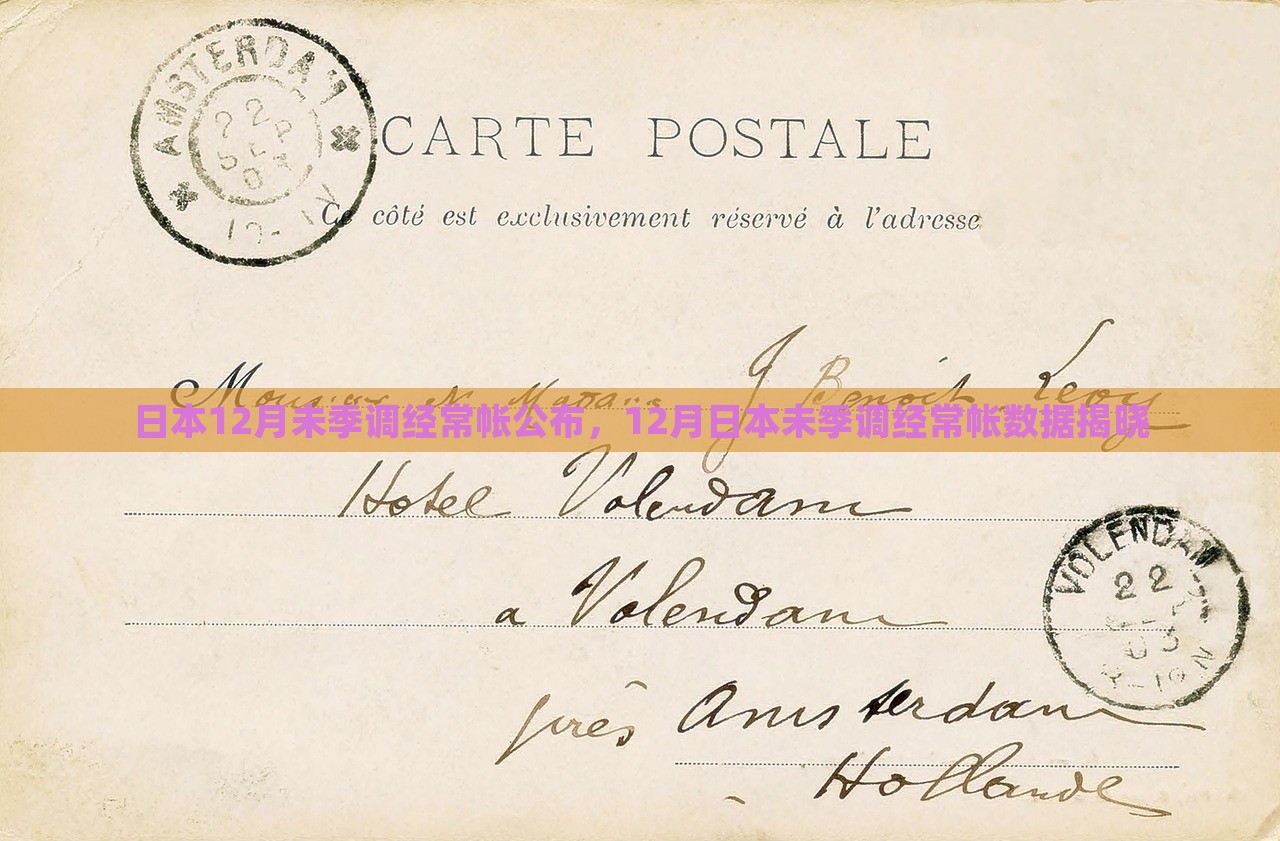 AMSTERDAM
22 SEP 03
CARTE POSTALE
Ce côté est exclusivement réservé à l'adresse
Monsieur & Madame J Benoit Levy
日本12月未季调经常帐公布，12月日本未季调经常帐数据揭晓
Hotel Volendam
a Volendam
VOLENDAM
22
03
près Amsterdam
Hollande